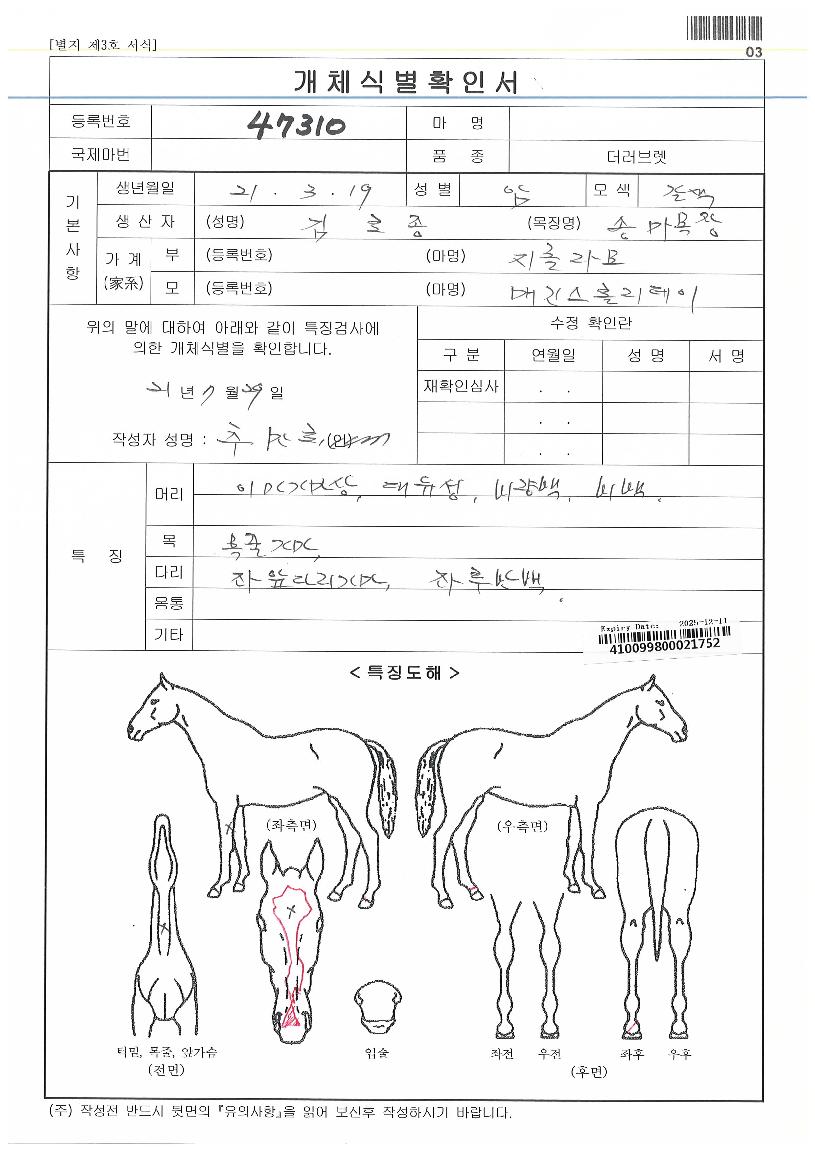 [별지 제3호 서식]
03
개체식별확인서
등록번호 47310 마 명
국제마번 품 종 더러브렛
기본사항
생년월일 21 . 3 . 19 성 별 암 모 색 갈색
생 산 자 (성명) 김 종 (목장명) 송 마목장
가 계 (家系) 부 (등록번호) (마명) 지롤라모
모 (등록번호) (마명) 매긴스홀리데이
위의 말에 대하여 아래와 같이 특징검사에
의한 개체식별을 확인합니다.
21 년 7 월 29 일
작성자 성명 : (인)
수정 확인란
구 분 연월일 성 명 서 명
재확인심사 . .
. .
. .
특 징
머리 대유성, 비량백, 비백.
목 목줄
다리 좌앞다리 좌후반백
몸통
기타
Expiry Date: 2025-12-11
410099800021752
< 특징도해 >
(좌측면) (우측면)
터밈, 목줄, 앞가슴
(전면)
입술
좌전 우전 좌후 우후
(후면)
(주) 작성전 반드시 뒷면의 『유의사항』을 읽어 보신후 작성하시기 바랍니다.